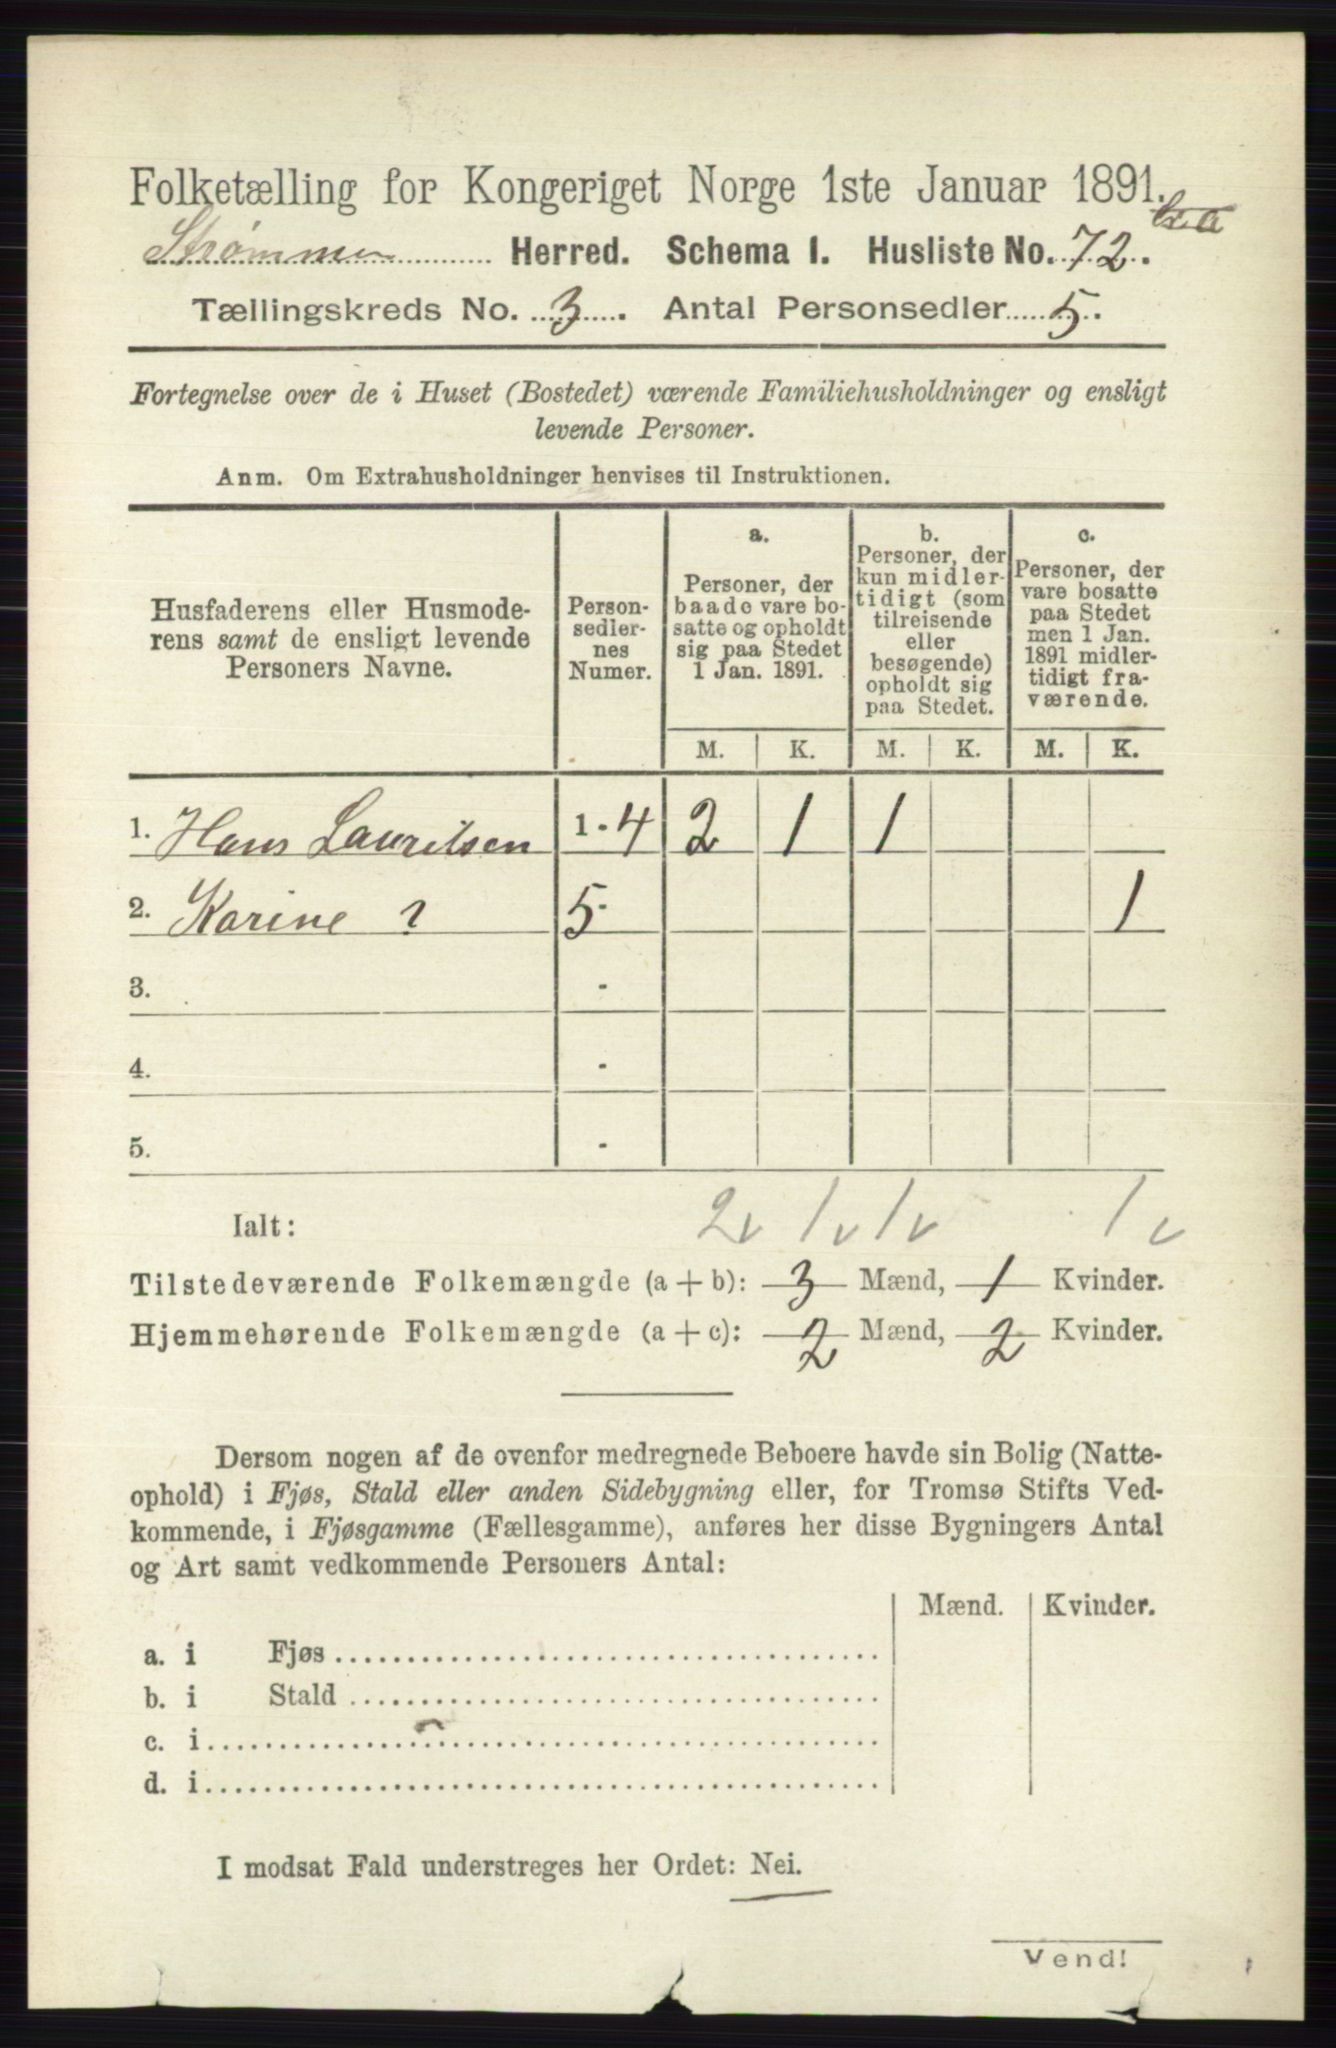 Folketælling for Kongeriget Norge 1ste Januar 1891.
Strømmen Herred. Schema I. Husliste No. 72.
Tællingskreds No. 3. Antal Personsedler 5.
Fortegnelse over de i Huset (Bostedet) værende Familiehusholdninger og ensligt
levende Personer.
Anm. Om Extrahusholdninger henvises til Instruktionen.
Husfaderens eller Husmode-
rens samt de ensligt levende
Personers Navne.
Person-
sedler-
nes
Numer.
a.
Personer, der
baade vare bo-
satte og opholdt
sig paa Stedet
1 Jan. 1891.
b.
Personer, der
kun midler-
tidigt (som
tilreisende
eller
besøgende)
opholdt sig
paa Stedet.
c.
Personer, der
vare bosatte
paa Stedet
men 1 Jan.
1891 midler-
tidigt fra-
værende.
M. K. M. K. M. K.
1. Hans Lauritsen 1-4 2 1 1
2. Karine ? 5- 1
3. -
4. -
5. -
Ialt: 2v 1v 1v 1v
Tilstedeværende Folkemængde (a + b): 3 Mænd, 1 Kvinder.
Hjemmehørende Folkemængde (a + c): 2 Mænd, 2 Kvinder.
Dersom nogen af de ovenfor medregnede Beboere havde sin Bolig (Natte-
ophold) i Fjøs, Stald eller anden Sidebygning eller, for Tromsø Stifts Ved-
kommende, i Fjøsgamme (Fællesgamme), anføres her disse Bygningers Antal
og Art samt vedkommende Personers Antal:
Mænd. Kvinder.
a. i Fjøs
b. i Stald
c. i
d. i
I modsat Fald understreges her Ordet: Nei.
Vend!